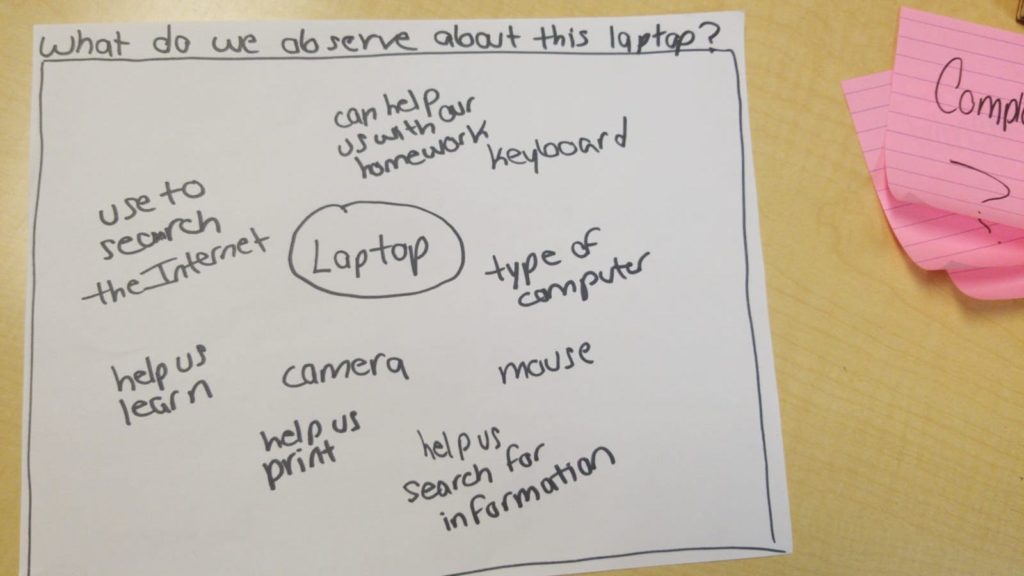 What do we observe about this laptop?
can help our
us with
homework
keyboard
use to
search
the Internet
Laptop
type of
computer
help us
learn
camera
mouse
help us
print
help us
search for
information
?